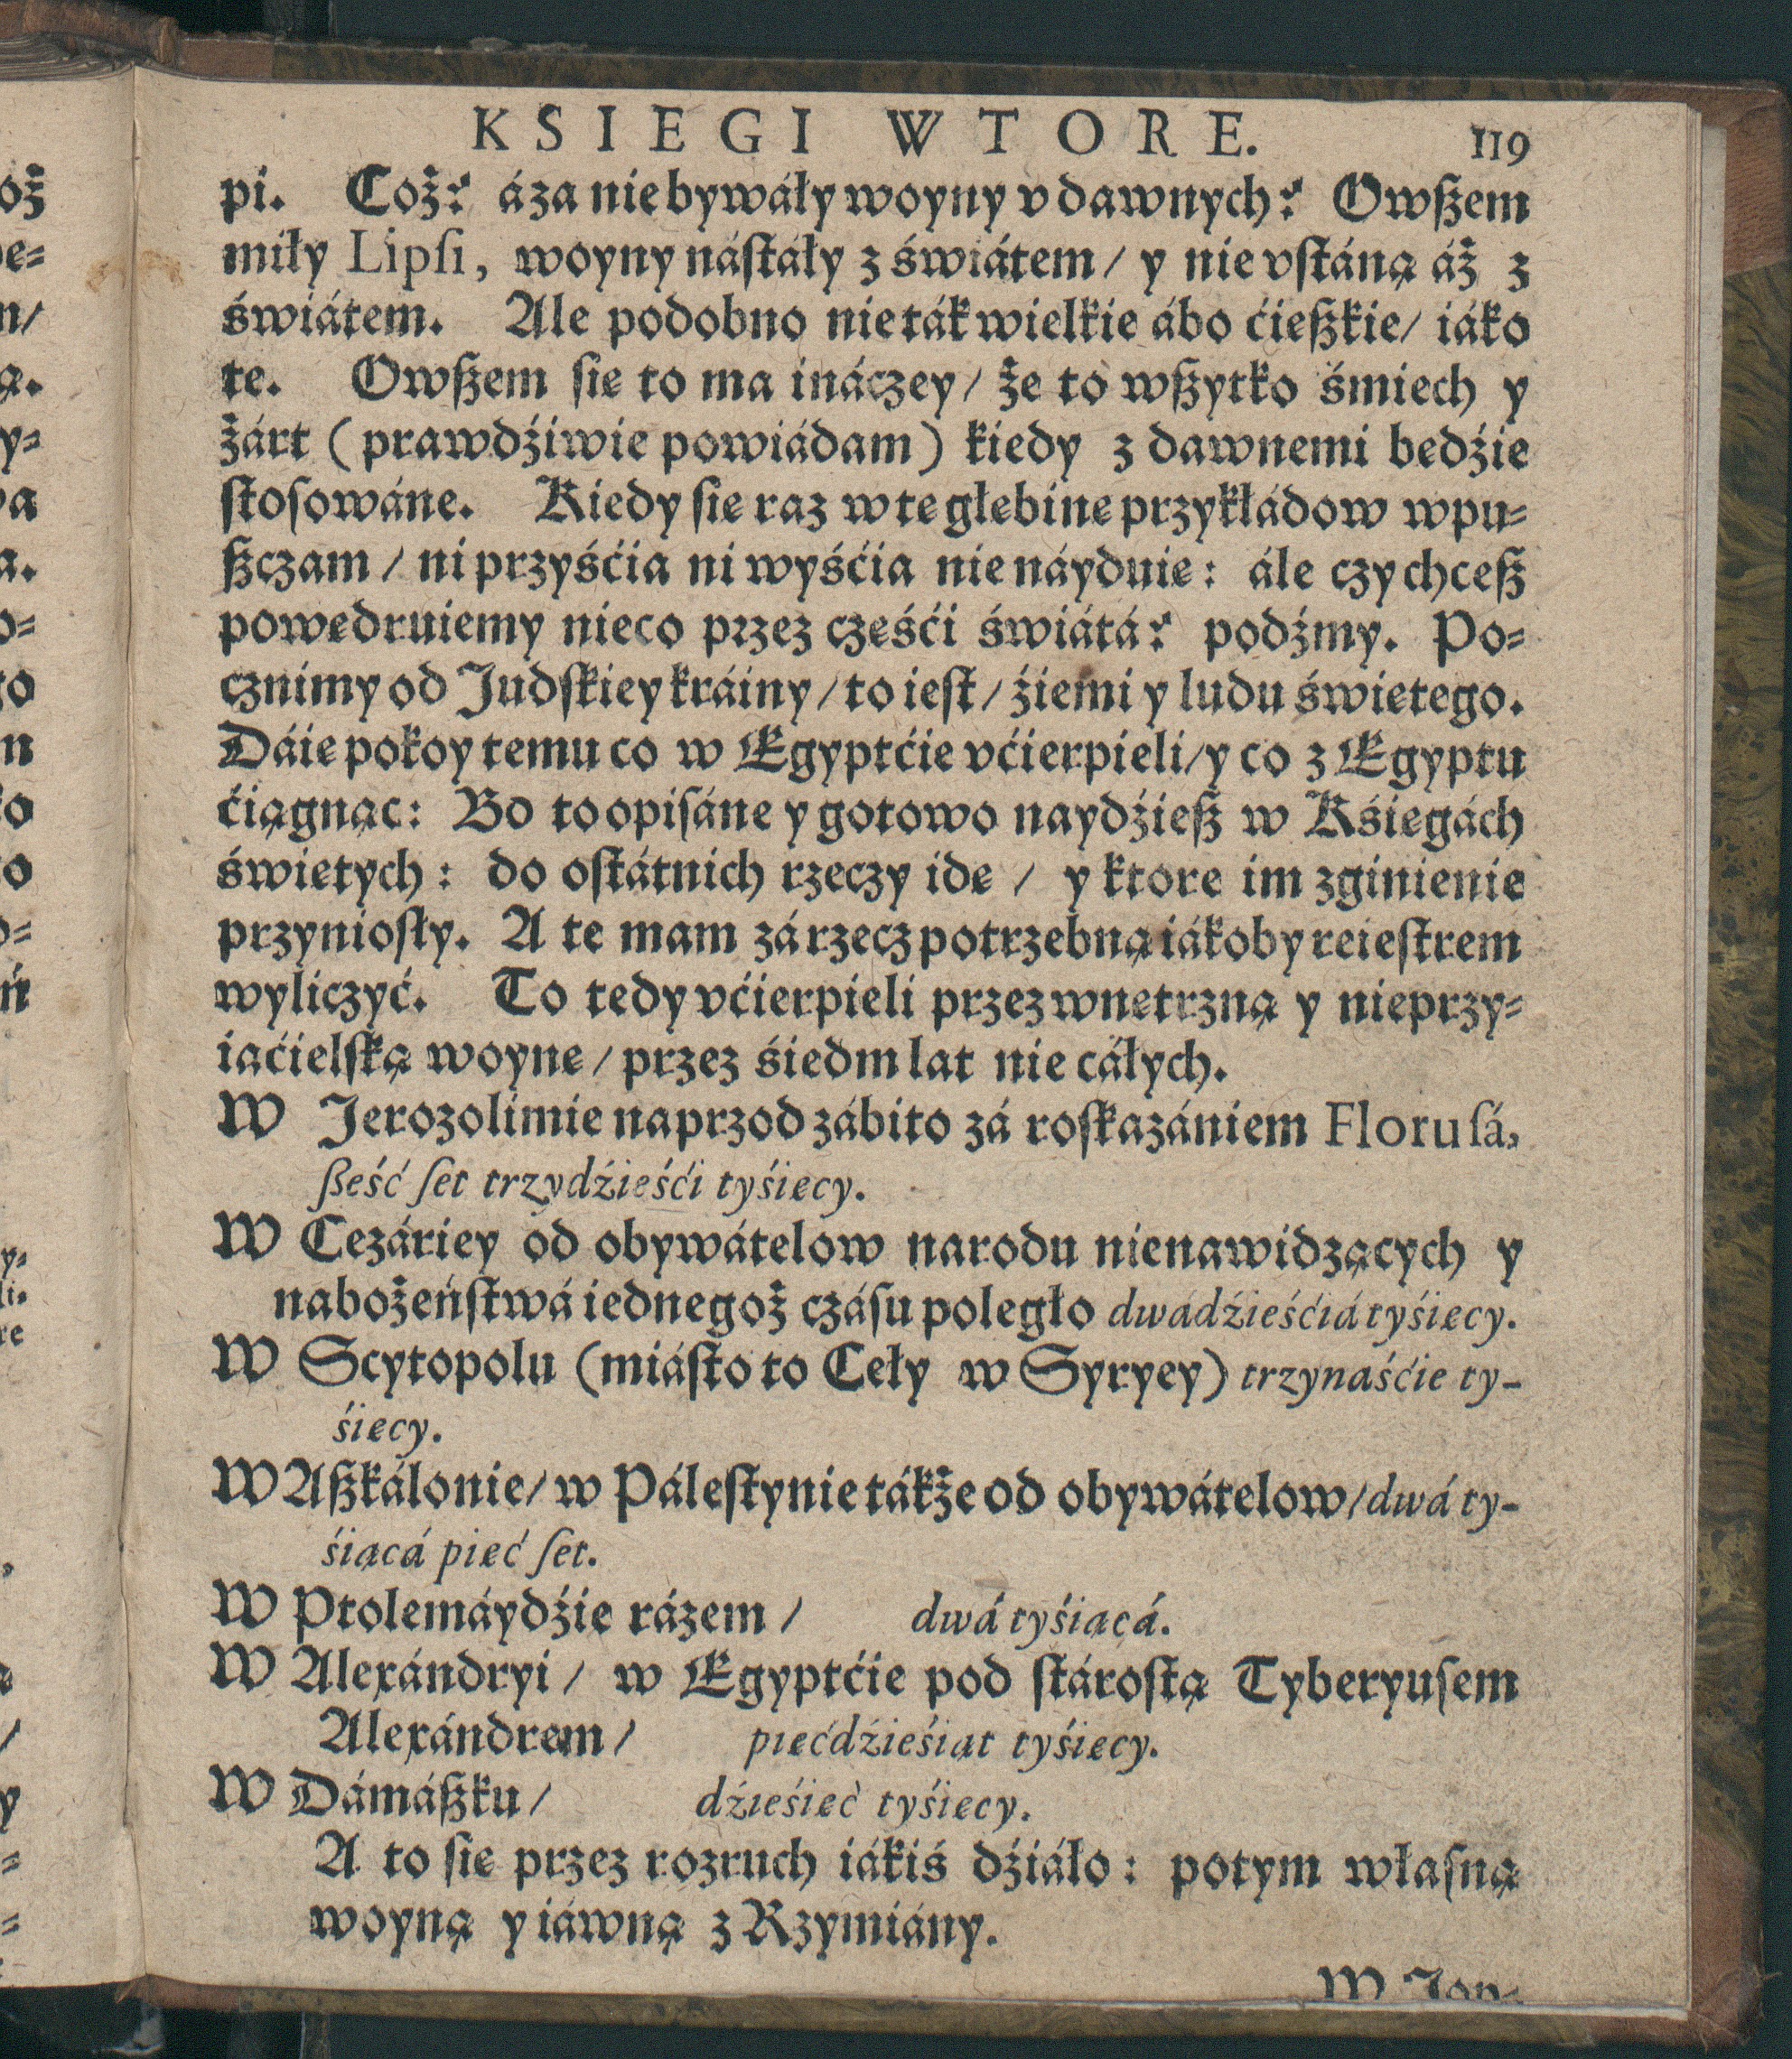 KSIEGI WTORE. 119
pi. Coż? áza nie bywáły woyny v dawnych? Owßem
miły Lipſi, woyny náſtáły z świátem/ y nie vſtáną áż z
świátem. Ale podobno nie ták wielkie ábo ćieżkie/ iáko
te. Owßem ſie to ma ináczey/ że to wßytko śmiech y
żárt (prawdźiwie powiádam) kiedy z dawnemi bedźie
ſtoſowáne. Kiedy ſie raz w te głebine przykłádow wpu-
ßczam/ ni przyśćia ni wyśćia nie náyduie: ále czy chceß
powedruiemy nieco przez cześći świátá? podźmy. Po-
cznimy od Judſkiey kráiny/ to ieſt/ źiemi y ludu świetego.
Dáie pokoy temu co w Egyptćie vćierpieli/ y co z Egyptu
ćiągnąc: Bo to opiſáne y gotowo naydźieß w Kśiegách
świetych: do oſtátnich rzeczy ide/ y ktore im zginienie
przynioſły. A te mam zá rzecz potrzebną iákoby reieſtrem
wyliczyć. To tedy vćierpieli przez wnetrzną y nieprzy-
iaćielſką woyne/ przez śiedm lat nie cáłych.
W Jerozolimie naprzod zábito zá roſkazániem Floruſá,
ßeść ſet trzydźieśći tyśiecy.
W Cezáriey od obywátelow narodu nienawidzących y
nabożeńſtwá iednegoż czáſu poległo dwádźieśćiá tyśiecy.
W Scytopolu (miáſto to Cely w Syryey) trzynaśćie ty-
śiecy.
W Aßkálonie/ w Páleſtynie tákże od obywátelow/ dwá ty-
śiącá pieć ſet.
W Ptolemáydźie rázem/ dwá tyśiącá.
W Alexándryi/ w Egyptćie pod ſtároſtą Tyberyuſem
Alexándrem/ piećdźieśiąt tyśiecy.
W Dámáßku/ dźieśieć tyśiecy.
A to ſie przez rozruch iákiś dźiáło: potym właſną
woyną y iáwną z Rzymiány.
W Jop-